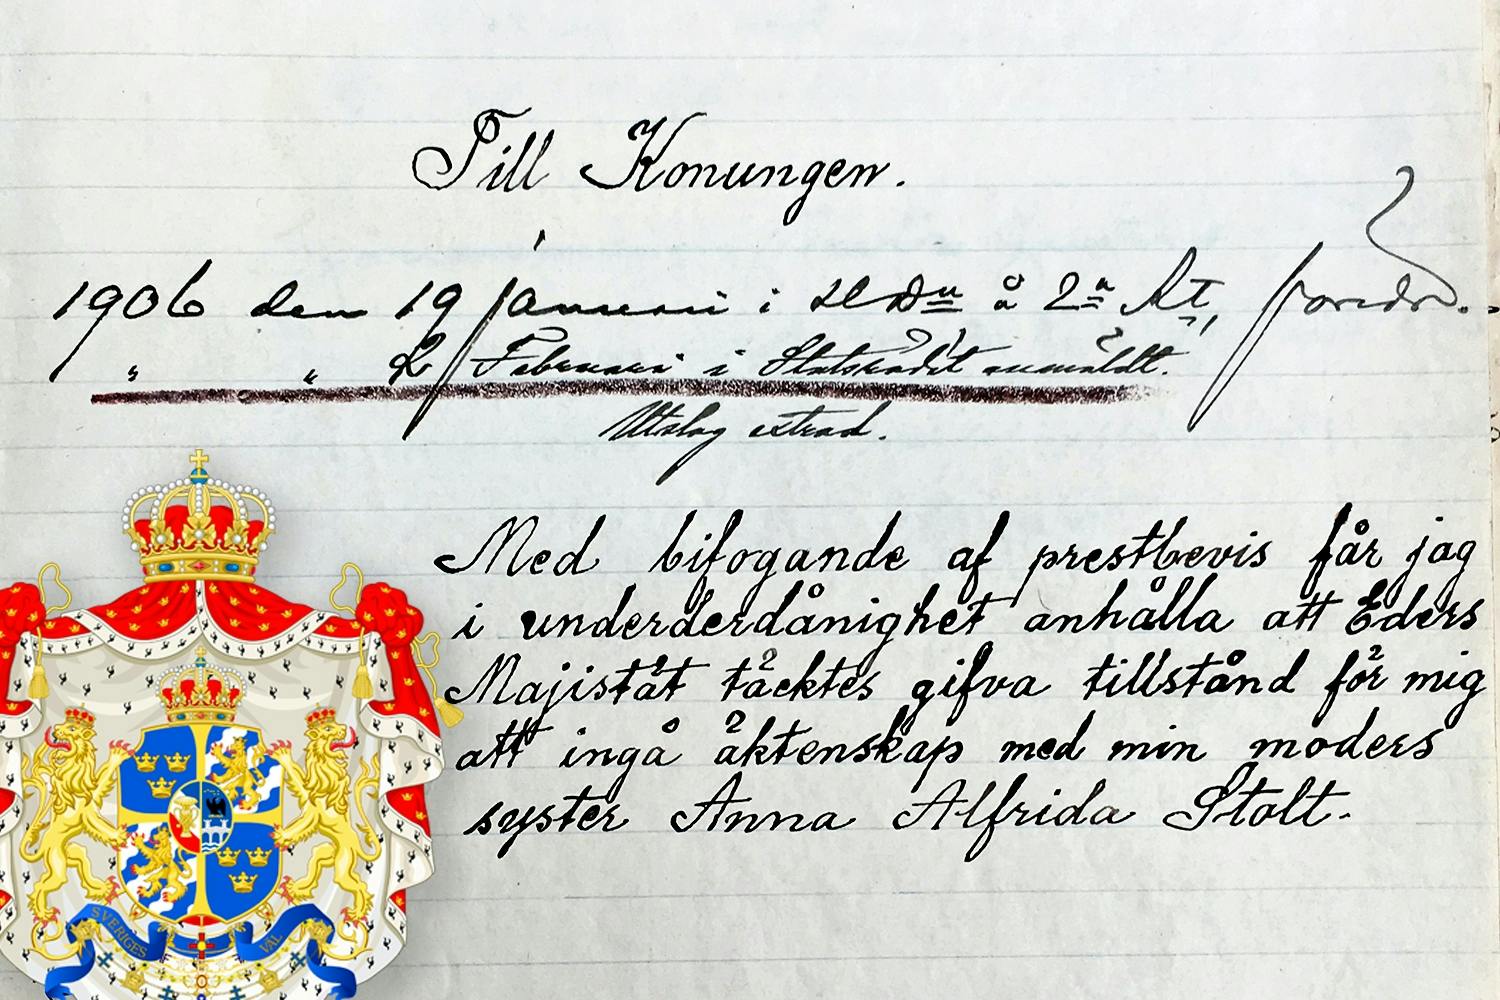 Till Konungen.
1906 den 19 januari i HDn å 2a At, föredr.
" " 2 Februari i Statsrådet anmäldt.
Utslag extrad.
Med bifogande af prestbevis får jag
i underderdånighet anhålla att Eders
Majistät täcktes gifva tillstånd för mig
att ingå äktenskap med min moders
syster Anna Alfrida Stolt.
SVERIGES VÄL